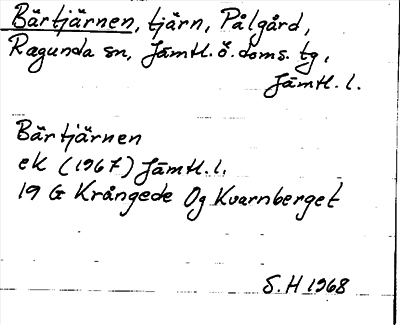 Bärtjärnen, tjärn, Pålgård,
Ragunda sn, Jämtl. ö. doms. tg,
Jämtl. l.
Bärtjärnen
ek (1967) Jämtl. l.
19 G Krångede Og Kvarnberget
S. H 1968